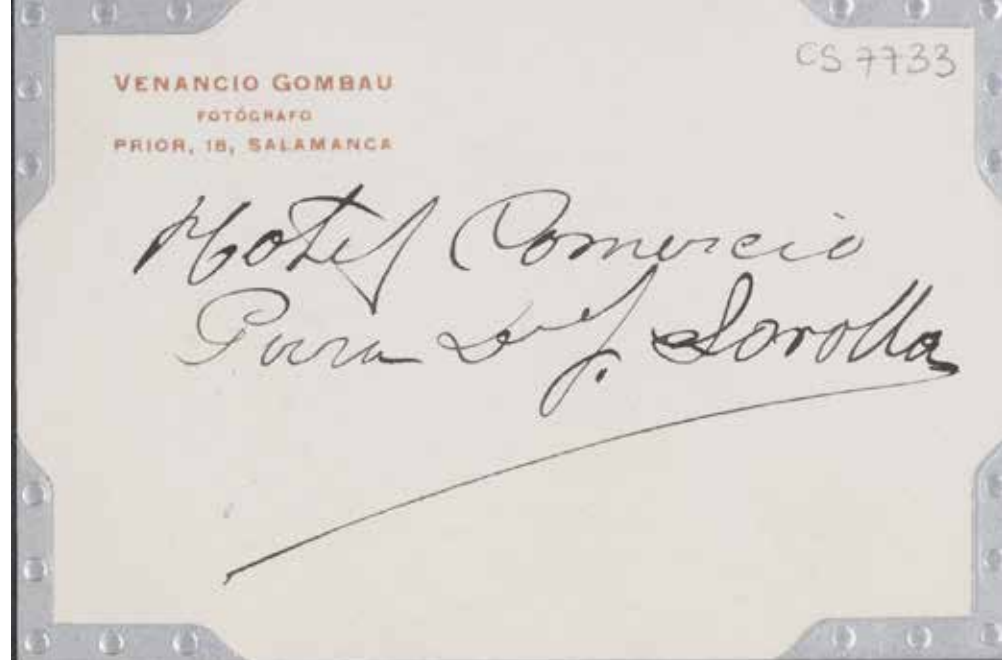 CS 7733
VENANCIO GOMBAU
FOTÓGRAFO
PRIOR, 18, SALAMANCA
Hotel Comercio
Para Dn J. Sorolla